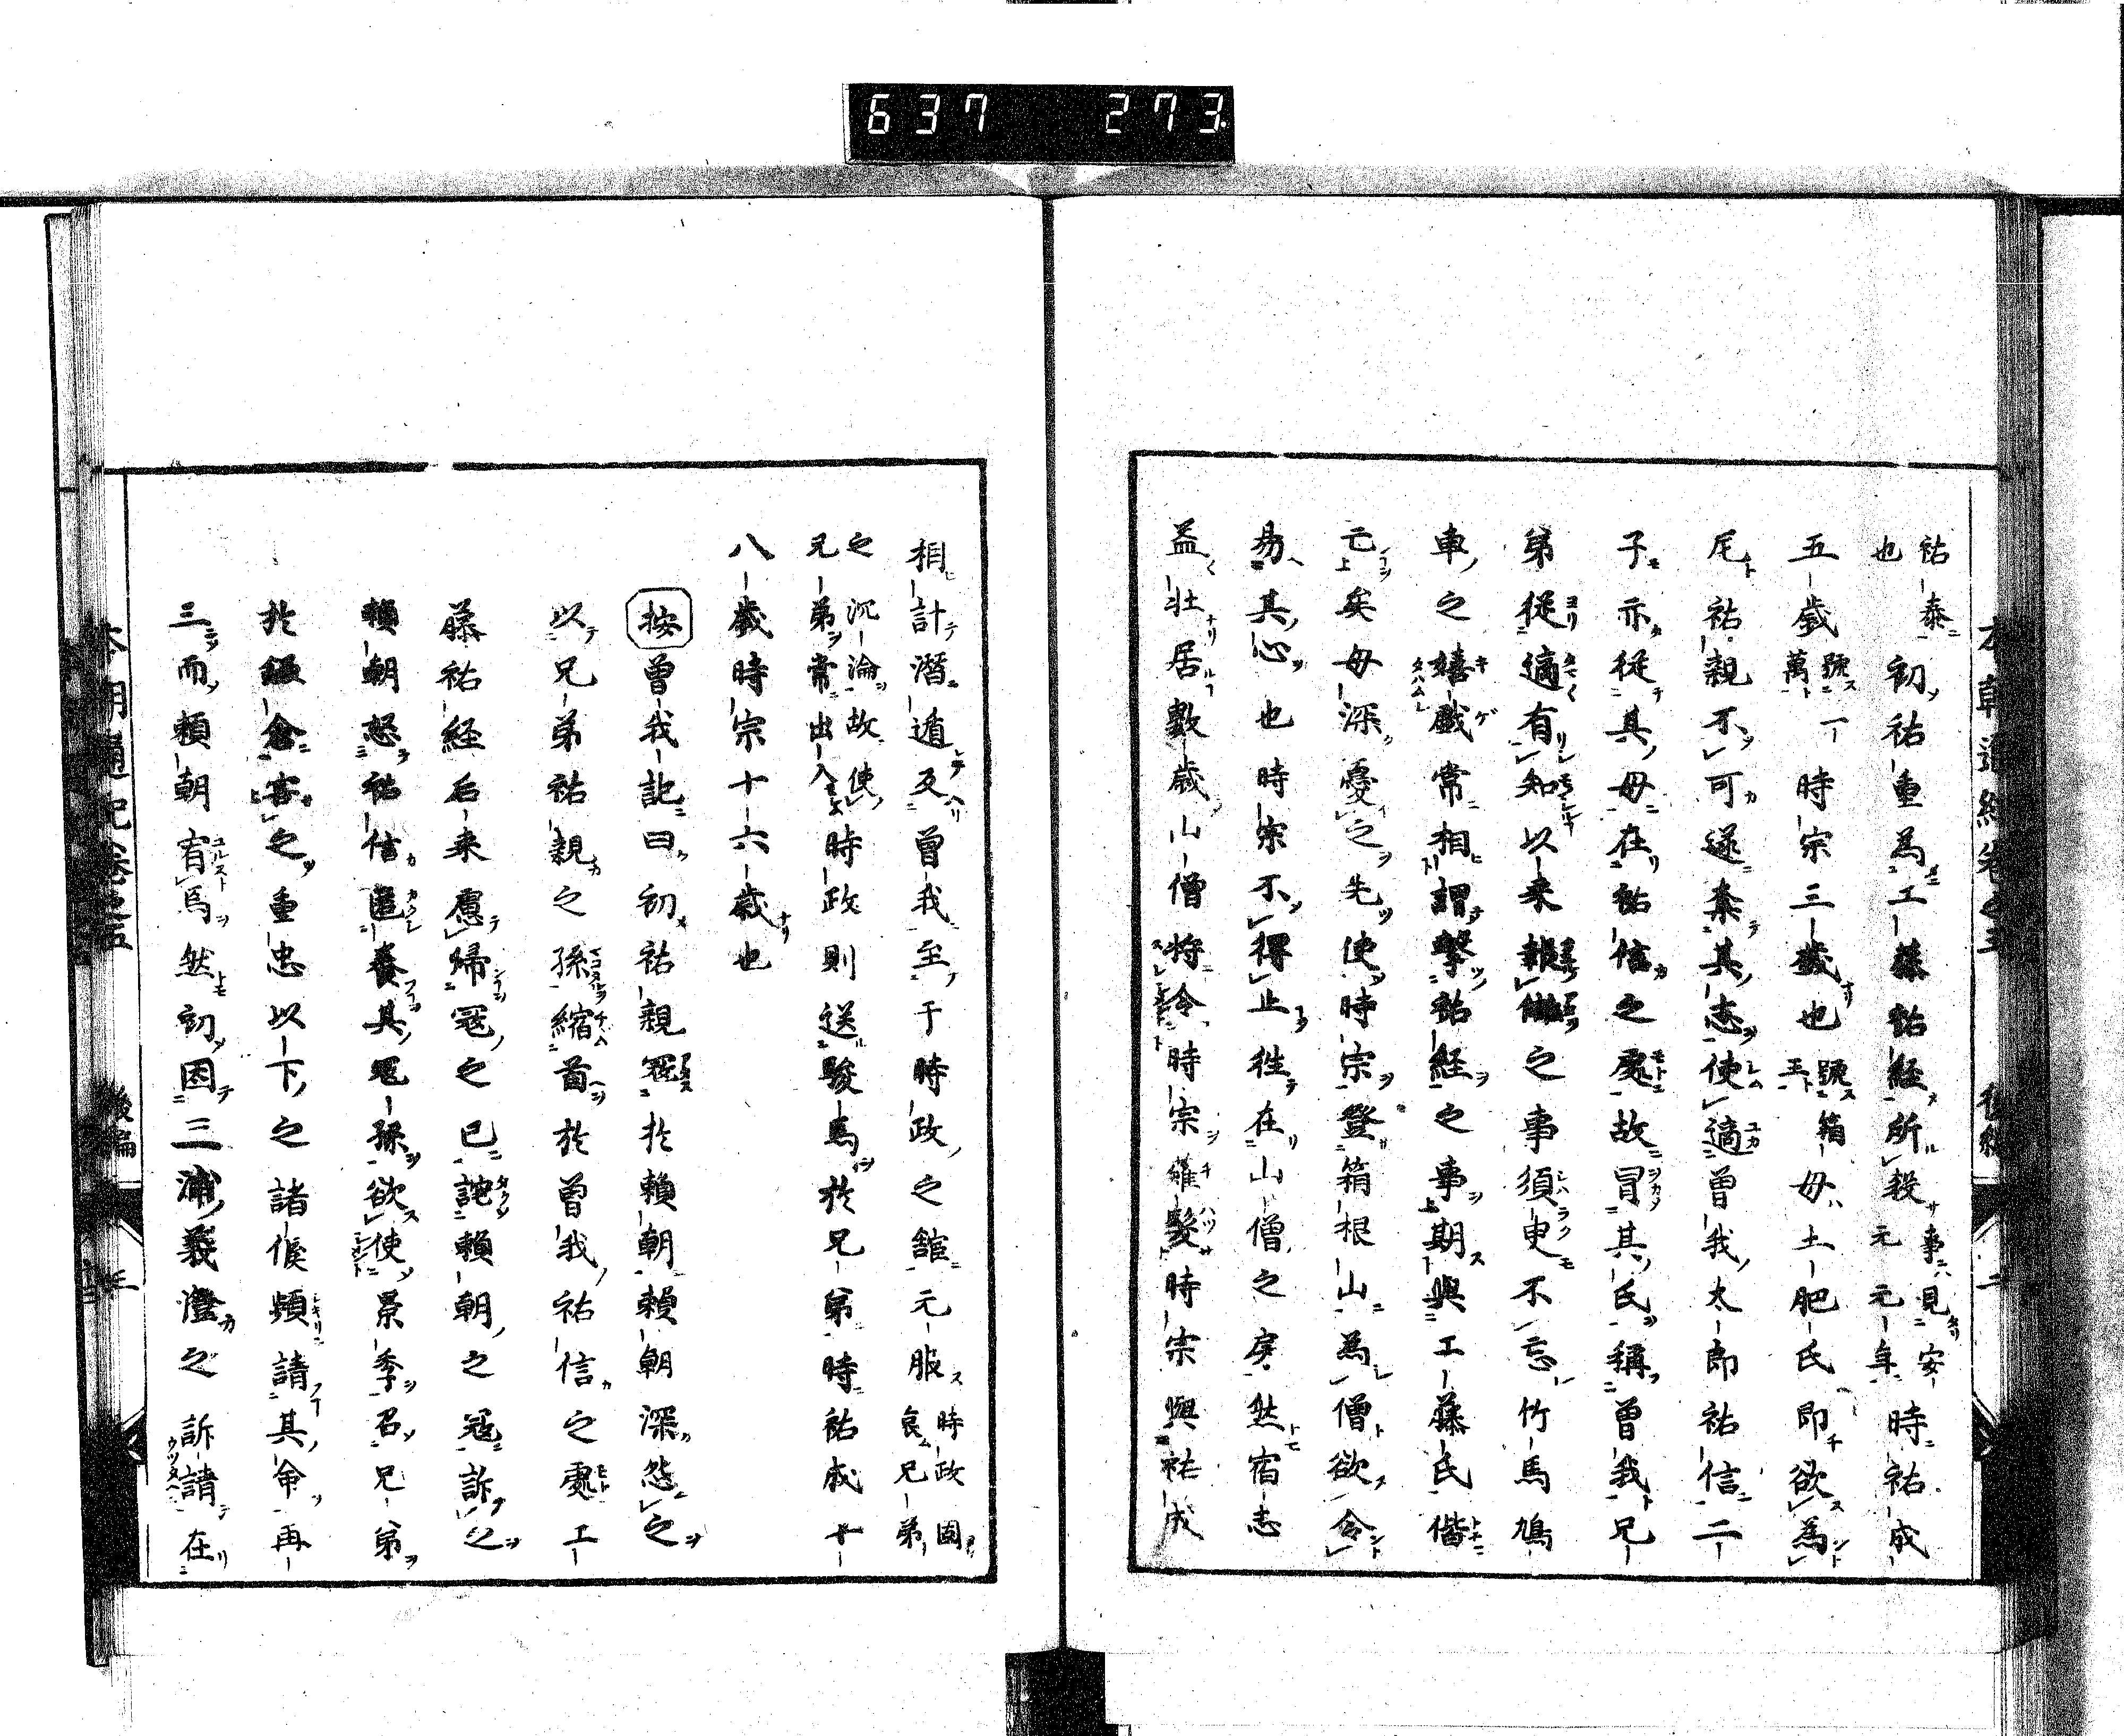 637 273
祐泰
也
初祐重為工藤祐経所殺
事見安
元元年
時祐成
五歳
號一
萬
時宗三歳也
號箱
王
母土肥氏即欲為
尼祐親不可遂奪其志使適曽我太郎祐信二
子亦従其母在祐信之處故冒其氏稱曽我兄
弟従適有知以来報讎之事須臾不忘竹馬鳩
車之嬉戯常相謂撃祐経之事期與工藤氏偕
亡矣母深憂之先使時宗登箱根山為僧欲令
易其心也時宗不得止徃在山僧之房然宿志
益壮居數歳山僧将令時宗薙髮時宗與祐成
相計潜遁反曽我至于時政之舘元服
時政固
哀兄弟
之沉淪故使
兄弟常出入
時政則送駿馬於兄弟時祐成十
八歳時宗十六歳也
按曽我記曰初祐親冦於頼朝頼朝深怨之
以兄弟祐親之孫縮首於曽我祐信之處工
藤祐経后来慮歸冦之已詑頼朝之冦訴之
頼朝怒祐信匿養其冤孫欲使景季召兄弟
於鎌倉害之重忠以下之諸侯頻請其命再
三而頼朝宥焉然初因三浦義澄之訴請在
本朝通紀巻之五 後編 二
本朝通紀巻之五 後編 三